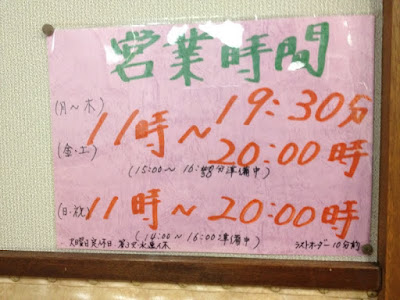 営業時間
(月〜木) 19:30分
11時〜
(金・土) 20:00時
(15:00〜16:30分準備中)
(日・祝) 11時〜20:00時
(14:00〜16:00準備中)
火曜日定休日 第3水連休 ラストオーダー10分前